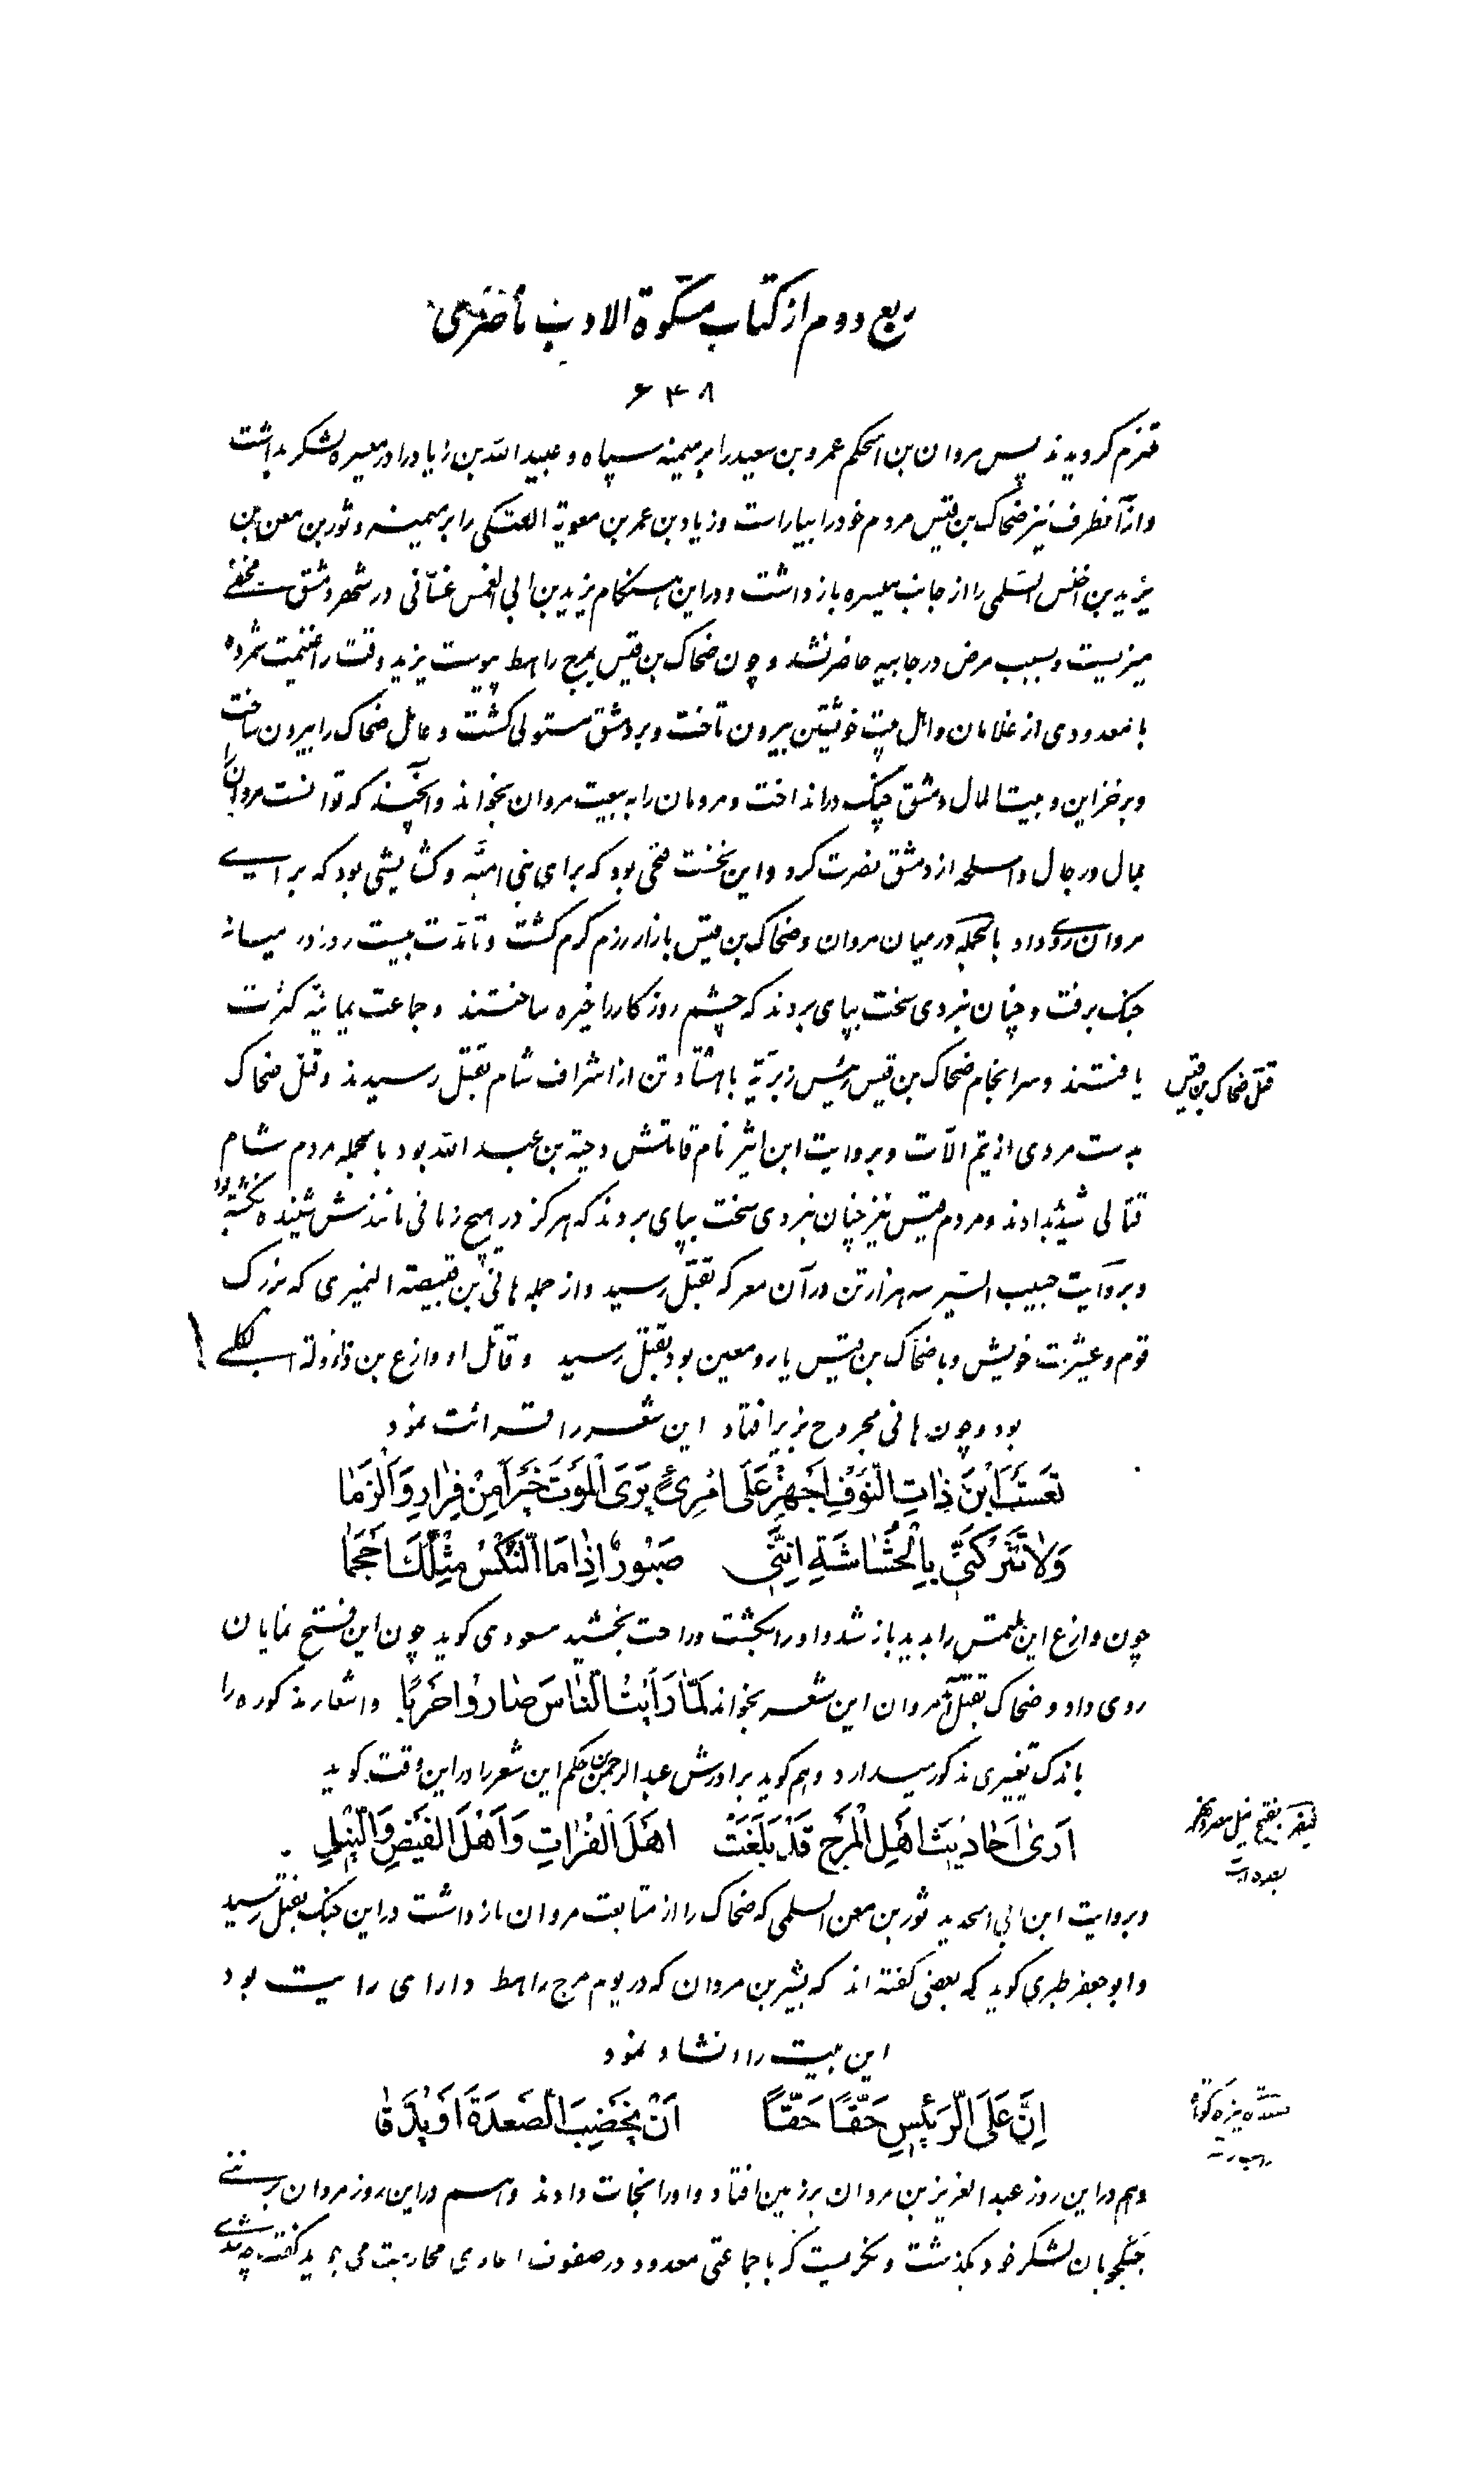 ربع دوم از کتاب مشکوة الادب ناصری
۶۴۸
ملتزم گردیدند پس مروان بن الحکم عمرو بن سعید را بر میمنه سپاه و عبید الله بن زیاد را در میسره لشکر بداشت
و از آنطرف نیز ضحاک بن قیس مردم خود را بیاراست و زیاد بن عمر بن معویة العتکی را بر میمنه و ثور بن معن بن
یزید بن اخنس السلمی را از جانب میسره باز داشت و در این هنگام یزید بن ابی الغمس غسّانی در شهر دمشق مختفی
میزیست و بسبب مرض در جابیه حاضر نشد و چون ضحاک بن قیس بمرج راهط پیوست یزید وقت را غنیمت شمرده
با معدودی از غلامان و اهل بیت خویشتن بیرون تاخت و بر دمشق مستولی گشت و عامل ضحاک را بیرون ساخت
و بر خزاین و بیت المال دمشق چنگ در انداخت و مردمان را به بیعت مروان بخواند و آنچند که توانست مروان را
بمال و رجال و اسلحه از دمشق نصرت کرد و این نخست فتحی بود که برای بنی امیّه و گشایشی بود که برای
مروان روی داد بالجمله در میان مروان و ضحاک بن قیس بازار رزم گرم گشت و تا مدّت بیست روز در میانه
جنگ برفت و چنان نبردی سخت بپای بردند که چشم روزگار را خیره ساختند و جماعت یمانیّه کثرت
یافتند و سرانجام ضحاک بن قیس رئیس زبیریّه با هشتاد تن از اشراف شام بقتل رسیدند و قتل ضحاک
قتل ضحاک بن قیس
بدست مردی از تیم اللّات و بروایت ابن اثیر نام قاتلش دحیة بن عبد الله بود بالجمله مردم شام
قتالی شدید بدادند و مردم قیس نیز چنان نبردی سخت بپای بردند که هرگز در هیچ زمانی مانندش شنیده نگشته بود
و بروایت حبیب السیر سه هزار تن در آن معرکه بقتل رسید و از جمله هانی بن قبیصة النمیری که بزرگ
قوم و عشیرت خویش و با ضحاک بن قیس یار و معین بود بقتل رسید و قاتل او وازع بن ذوالة الکلبی
بود و چون هانی مجروح بزیر افتاد این شعر را قرائت نمود
تَعَسْتَ ابْنَ ذاتِ النَّوْفِ اَجْهِزْ عَلَی امْرِئٍ یَرَی الْمَوْتَ خَیْراً مِنْ فِرارٍ وَ اَلْزَما
وَلا تَتْرُکَنّی بِالْحُشاشَةِ اِنَّنی صَبُورٌ اِذا مَا النِّکْسُ مِثْلُکَ اَحْجَما
چون وازع این ملتمس را بدید باز شد و او را بکشت و راحت بخشید مسعودی گوید چون این فتح نمایان
روی داد و ضحاک بقتل آمد مروان این شعر بخواند لَمّا رَاَیْتُ النّاسَ صارُوا حَرْبًا و اشعار مذکوره را
باندک تغییری مذکور میدارد و هم گوید برادرش عبد الرحمن بن حکم این شعر را در این وقت گوید
اَری اَحادیثَ اَهْلِ الْمَرْجِ قَدْ بَلَغَتْ اَهْلَ الْفُراتِ وَ اَهْلَ الْفَیْضِ وَ النّیلِ
و بروایت ابن ابی الحدید ثور بن معن السلمی که ضحاک را از متابعت مروان باز داشت در این جنگ بقتل رسید
و ابو جعفر طبری گوید که بعضی گفته اند که بشر بن مروان که در یوم مرج راهط دارای رایت بود
این بیت را انشاد نمود
اِنَّ عَلَی الرَّئیسِ حَقًّا حَقًّا اَنْ یَخْضِبَ الصَّعْدَةَ اَوْ یَنْدَقّا
و هم در این روز عبد العزیز بن مروان بر زمین افتاد و او را نجات دادند و هم در این روز مروان بر تنی
جنگجویان لشکر خود بگذشت و نگریست که با جماعتی معدود در صفوف اعادی محاربت می جوید گفت چه شدی